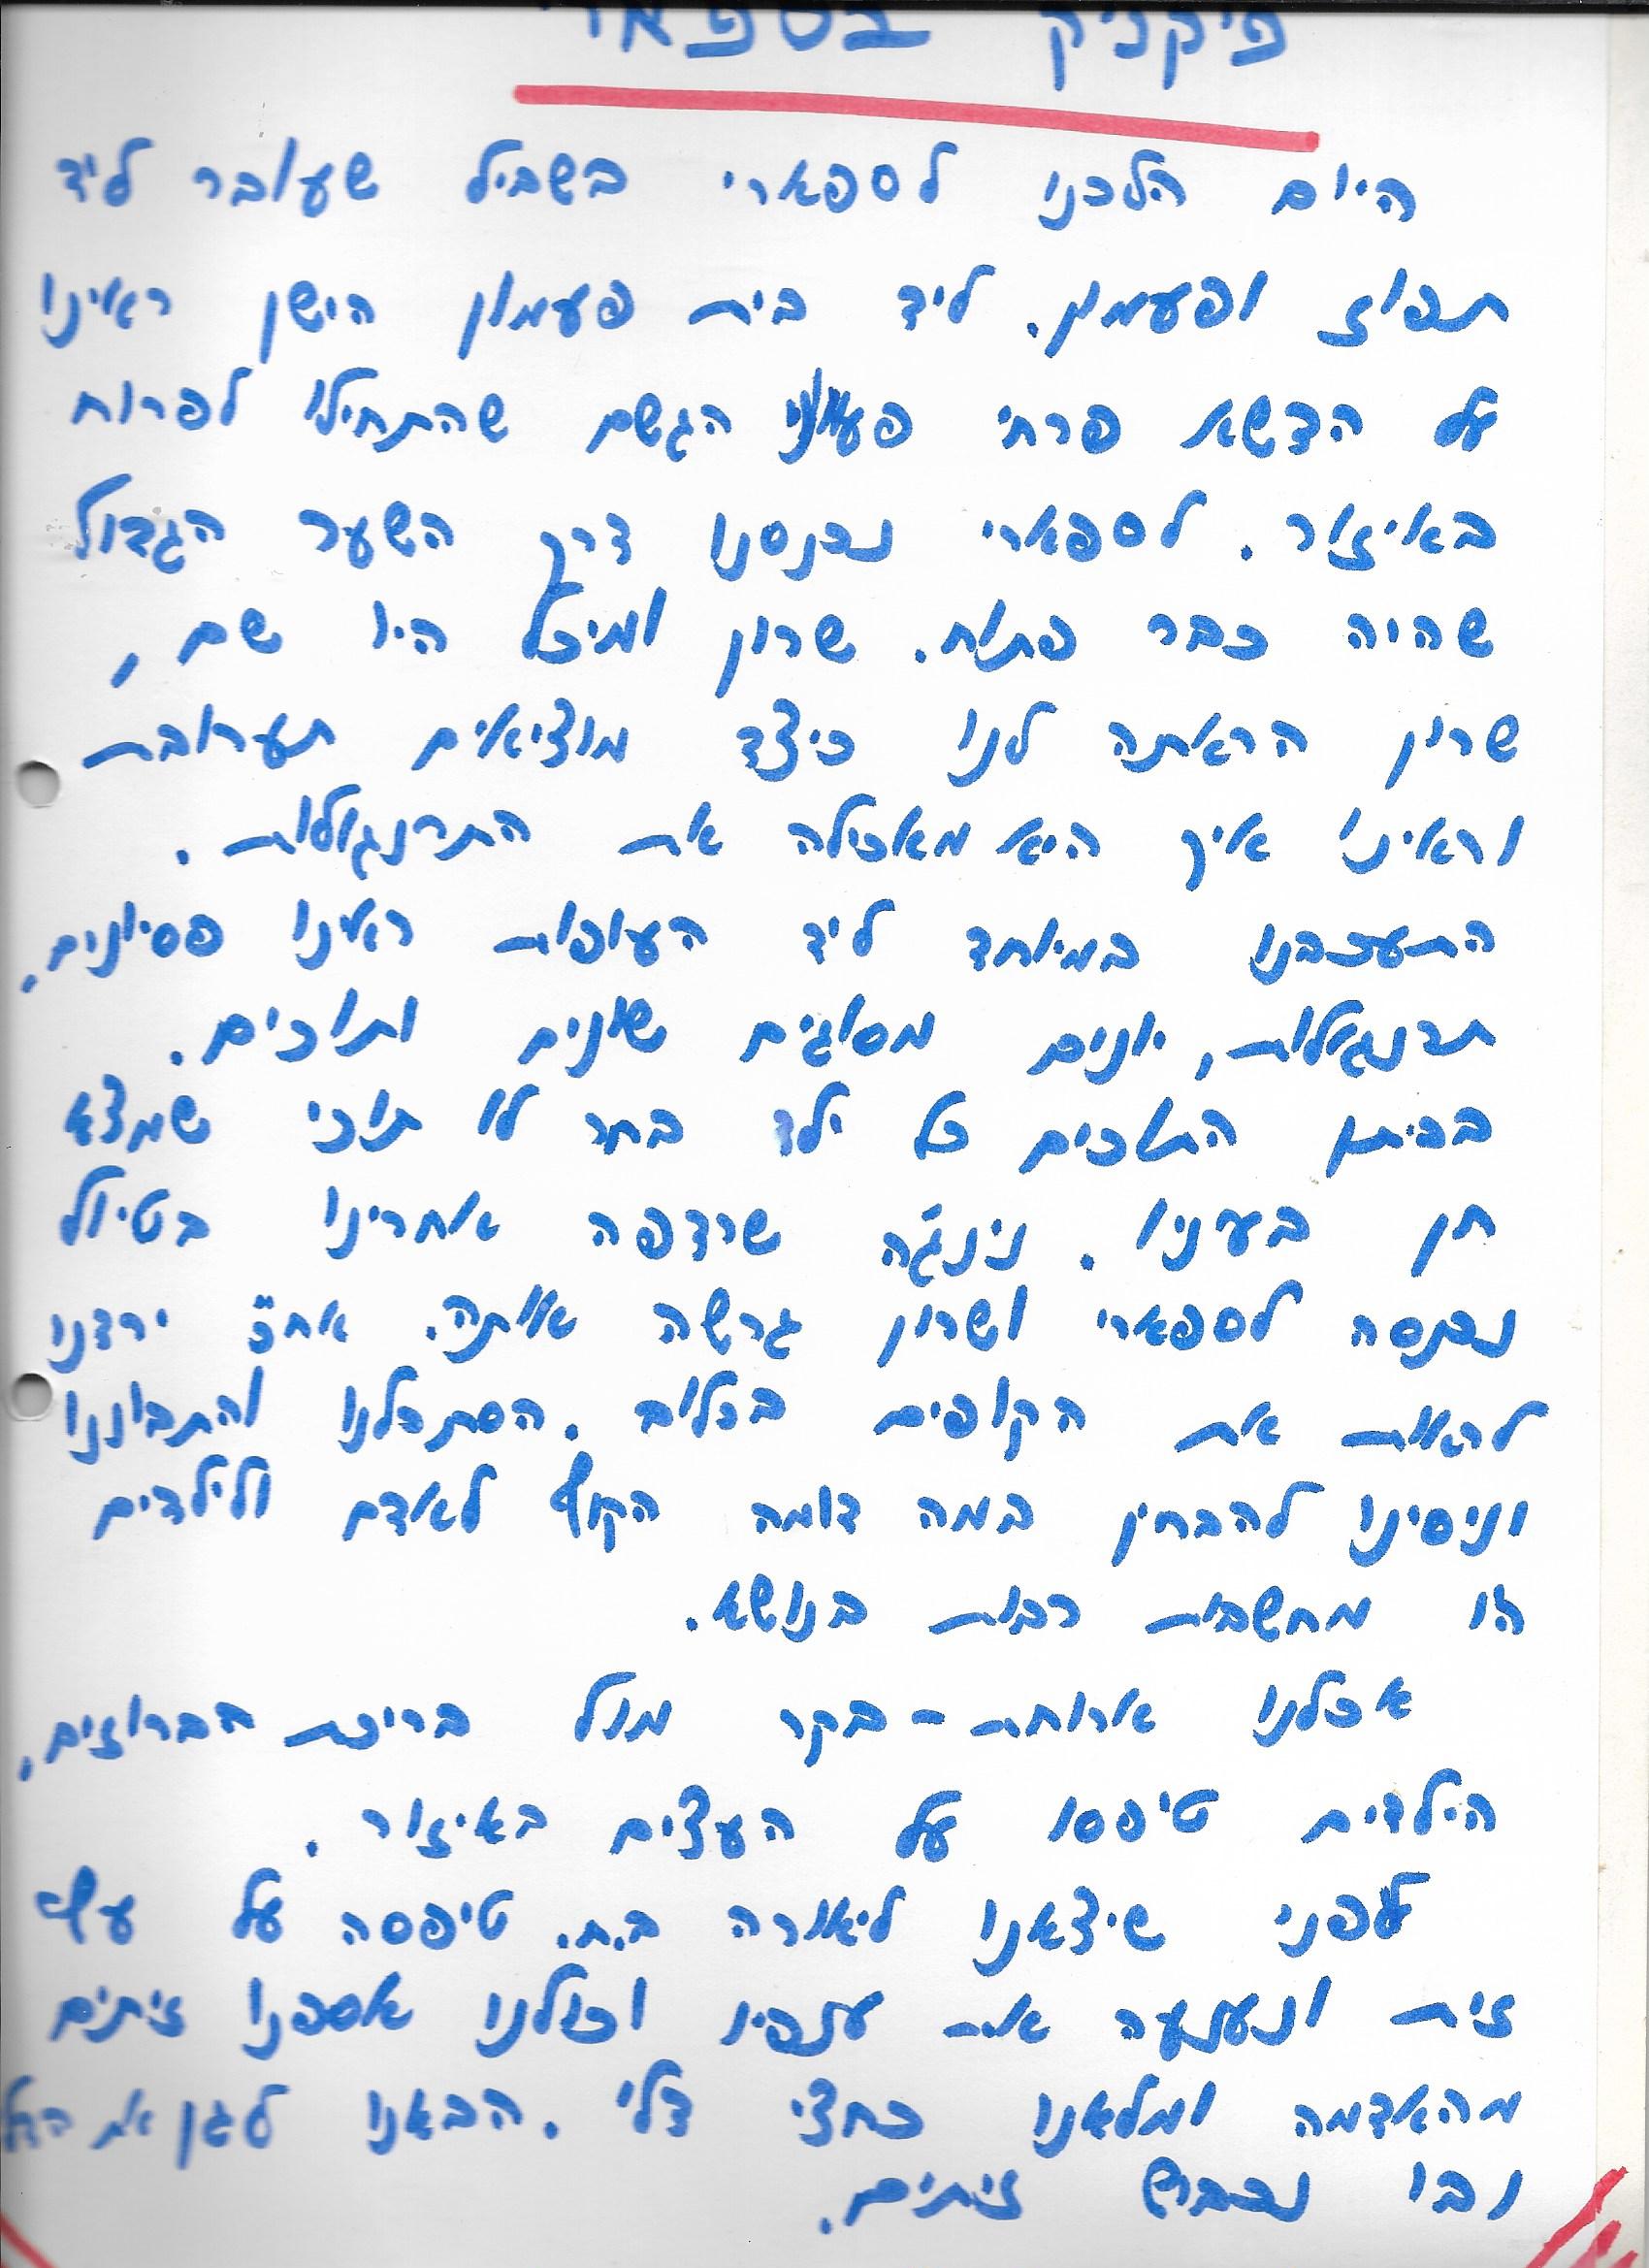 פיקניק בספארי
היום הלכנו לספארי בשביל שעובר ליד
תפוז ופעמון. ליד בית פעמון הישן ראינו
על הדשא פרחי פעמוני הגשם שהתחילו לפרוח
באיזור. לספארי נכנסנו דרך השער הגדול
שהיה כבר פתוח. שרון ומיכל היו שם,
שרון הראתה לנו כיצד מוציאים תערובת
וראינו איך היא מאכילה את התרנגולות.
התעכבנו במיוחד ליד העופות ראינו פסיונים,
תרנגולות, יונים מסוגים שונים ותוכים.
בביתן התוכים כל ילד בחר לו תוכי שמצא
חן בעיניו. נינג'ה שרדפה אחרינו בטיול
נכנסה לספארי ושרון גרשה אותה. אח"כ ירדנו
לראות את הקופים בכלוב. הסתכלנו והתבוננו
וניסינו להבחין במה דומה הקוף לאדם ולילדים
היו מחשבות רבות בנושא.
אכלנו ארוחת-בקר מול בריכת הברווזים,
הילדים טיפסו על העצים באיזור.
לפני שיצאנו ליאורה ב.ח. טיפסה על עץ
זית ונענעה את ענפיו וכולנו אספנו זיתים
מהאדמה ומלאנו כחצי דלי. הבאנו לגן את הדלי
ובו נכבוש זיתים.